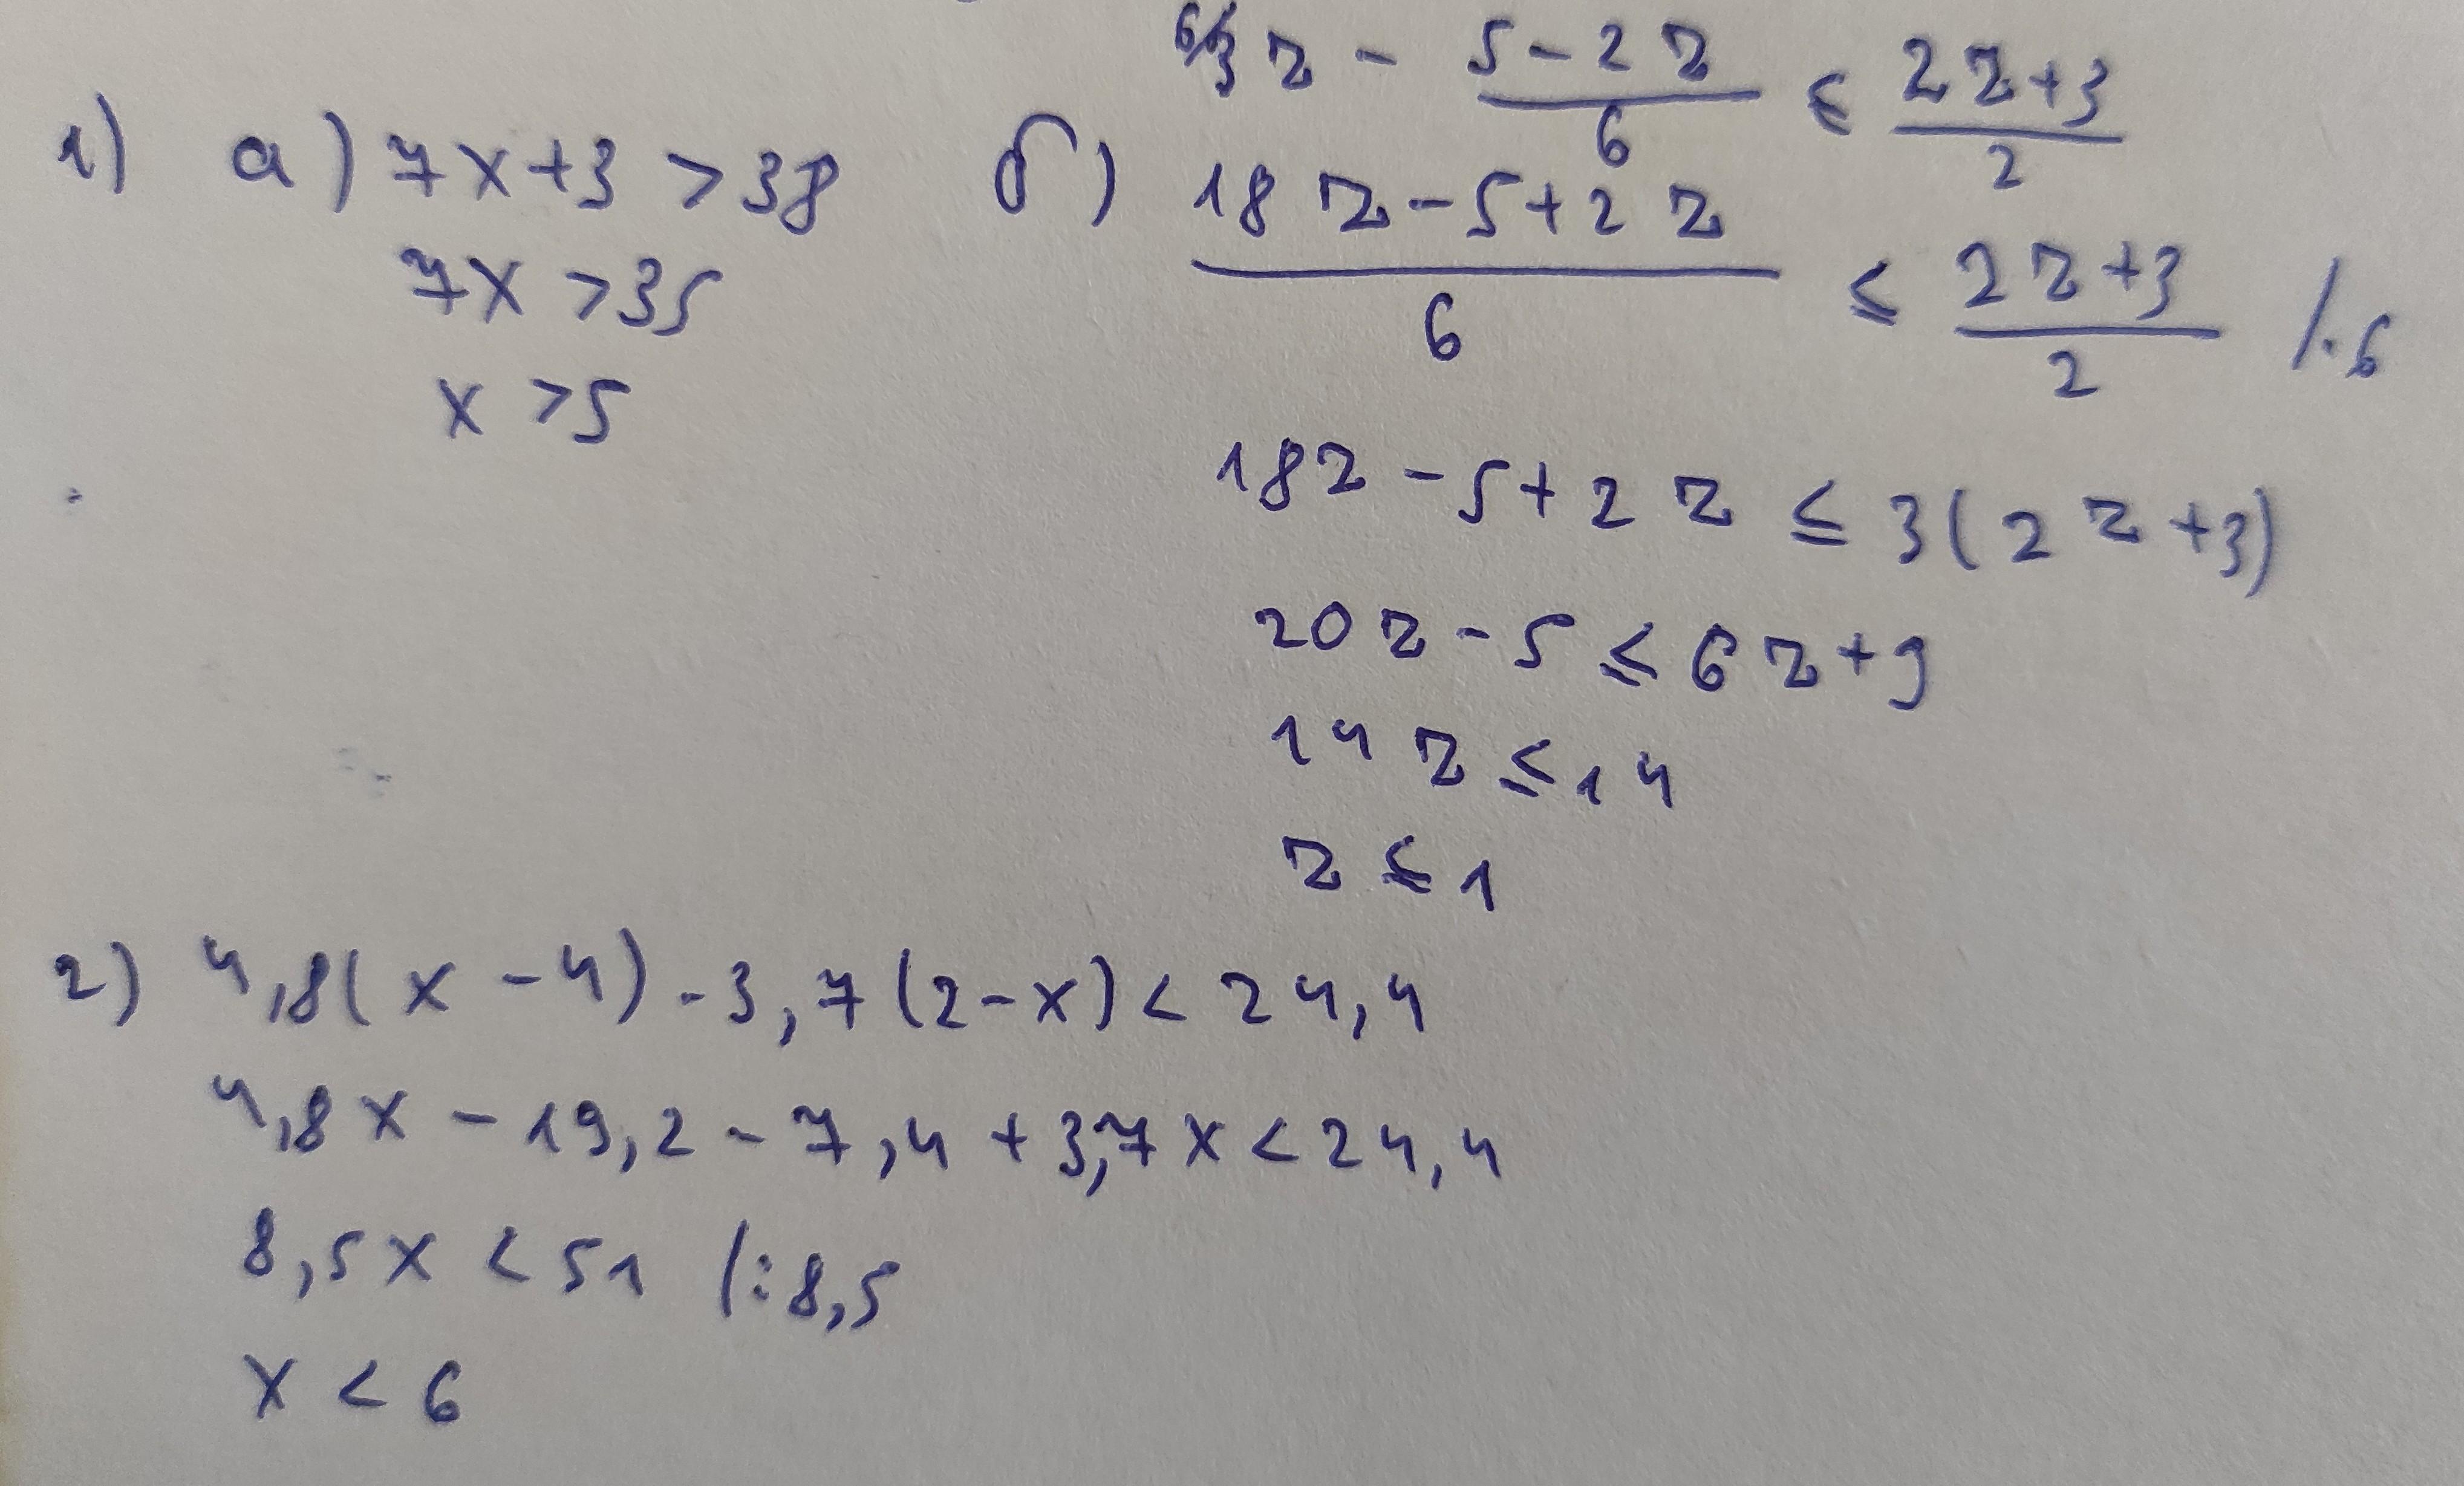 1) а) 7x+3 >38
7x >35
x >5
б) 3z - (5-2z)/6 ≤ (2z+3)/2
(18z-5+2z)/6 ≤ (2z+3)/2 /·6
18z -5+2z ≤ 3(2z+3)
20z-5 ≤ 6z+9
14z ≤ 14
z ≤ 1
2) 4,8(x-4)-3,7(2-x)< 24,4
4,8x - 19,2 - 7,4 + 3,7x < 24,4
8,5x < 51 /:8,5
x < 6